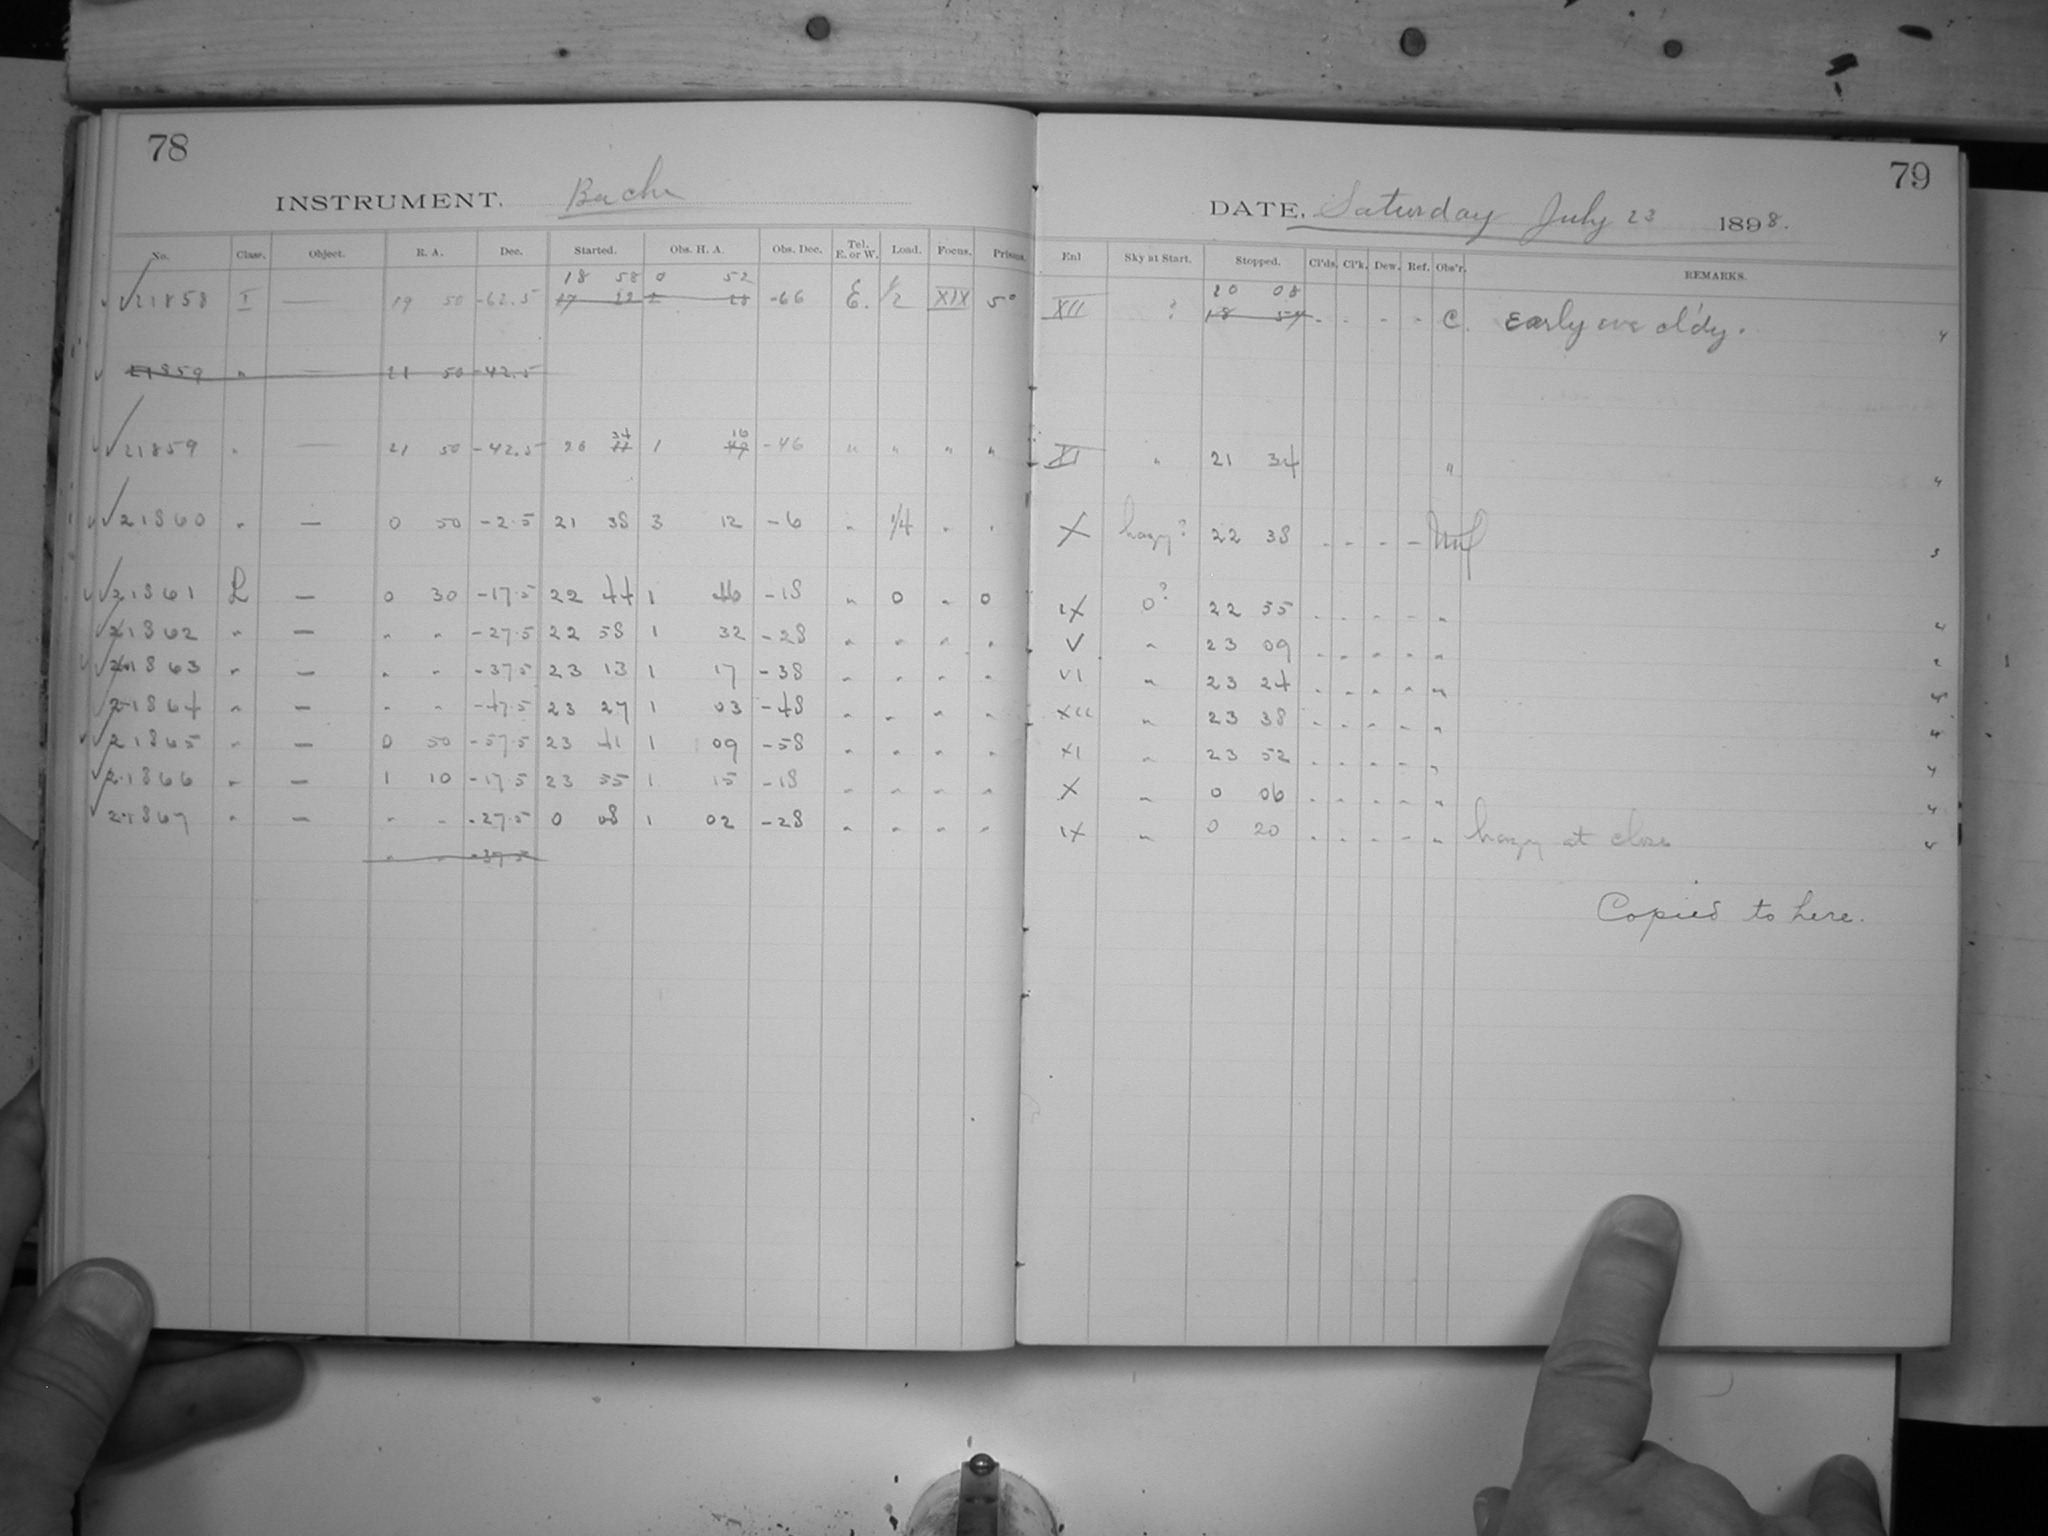 78
INSTRUMENT. Bache
No. Class. Object. R. A. Dec. Started. Obs. H. A. Obs. Dec. Tel. E. or W. Load. Focus. Prisms.
18 58 0 52
21858 I — 19 50 -62.5 -66 E. 1/2 XIX 5°
21859 " — 21 50 -42.5
34 16
21859 " — 21 50 -42.5 20 1 -46 " " " "
21860 " — 0 50 -2.5 21 38 3 12 -6 " 1/4 " "
21861 L — 0 30 -17.5 22 44 1 46 -18 " 0 " 0
21862 " — " " -27.5 22 58 1 32 -28 " " " "
21863 " — " " -37.5 23 13 1 17 -38 " " " "
21864 " — " " -47.5 23 27 1 03 -48 " " " "
21865 " — 0 50 -57.5 23 41 1 09 -58 " " " "
21866 " — 1 10 -17.5 23 55 1 15 -18 " " " "
21867 " — " " -27.5 0 08 1 02 -28 " " " "
" " -37.5
79
DATE, Saturday July 23 1898.
Enl Sky at Start. Stopped. Cl'ds. Cl'k. Dew. Ref. Obs'r. REMARKS.
20 08
XII ? 18 54 - - - - C. Early eve cl'dy. 4
XI " 21 34 " 4
X hazy? 22 38 - - - - 3
IX 0? 22 55 - - - - " 4
V " 23 09 - - - - "
VI " 23 24 - - - - "
XII " 23 38 - - - - " 4
XI " 23 52 - - - - " 4
X " 0 06 - - - - " 4
IX " 0 20 - - - - " hazy at close
Copied to here.